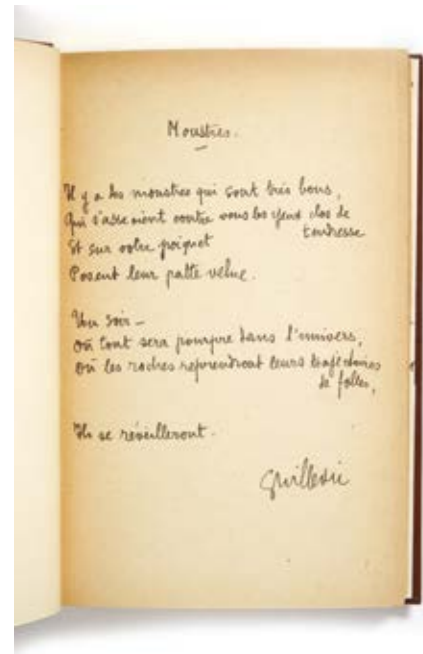 Monstres.
Il y a des monstres qui sont très bons,
Qui s'asseoient contre vous les yeux clos de
tendresse
Et sur votre poignet
Posent leur patte velue.
Un soir —
Où tout sera pourpre dans l'univers,
Où les roches reprendront leurs trajectoires
de folles,
Ils se réveilleront.
Guillevic